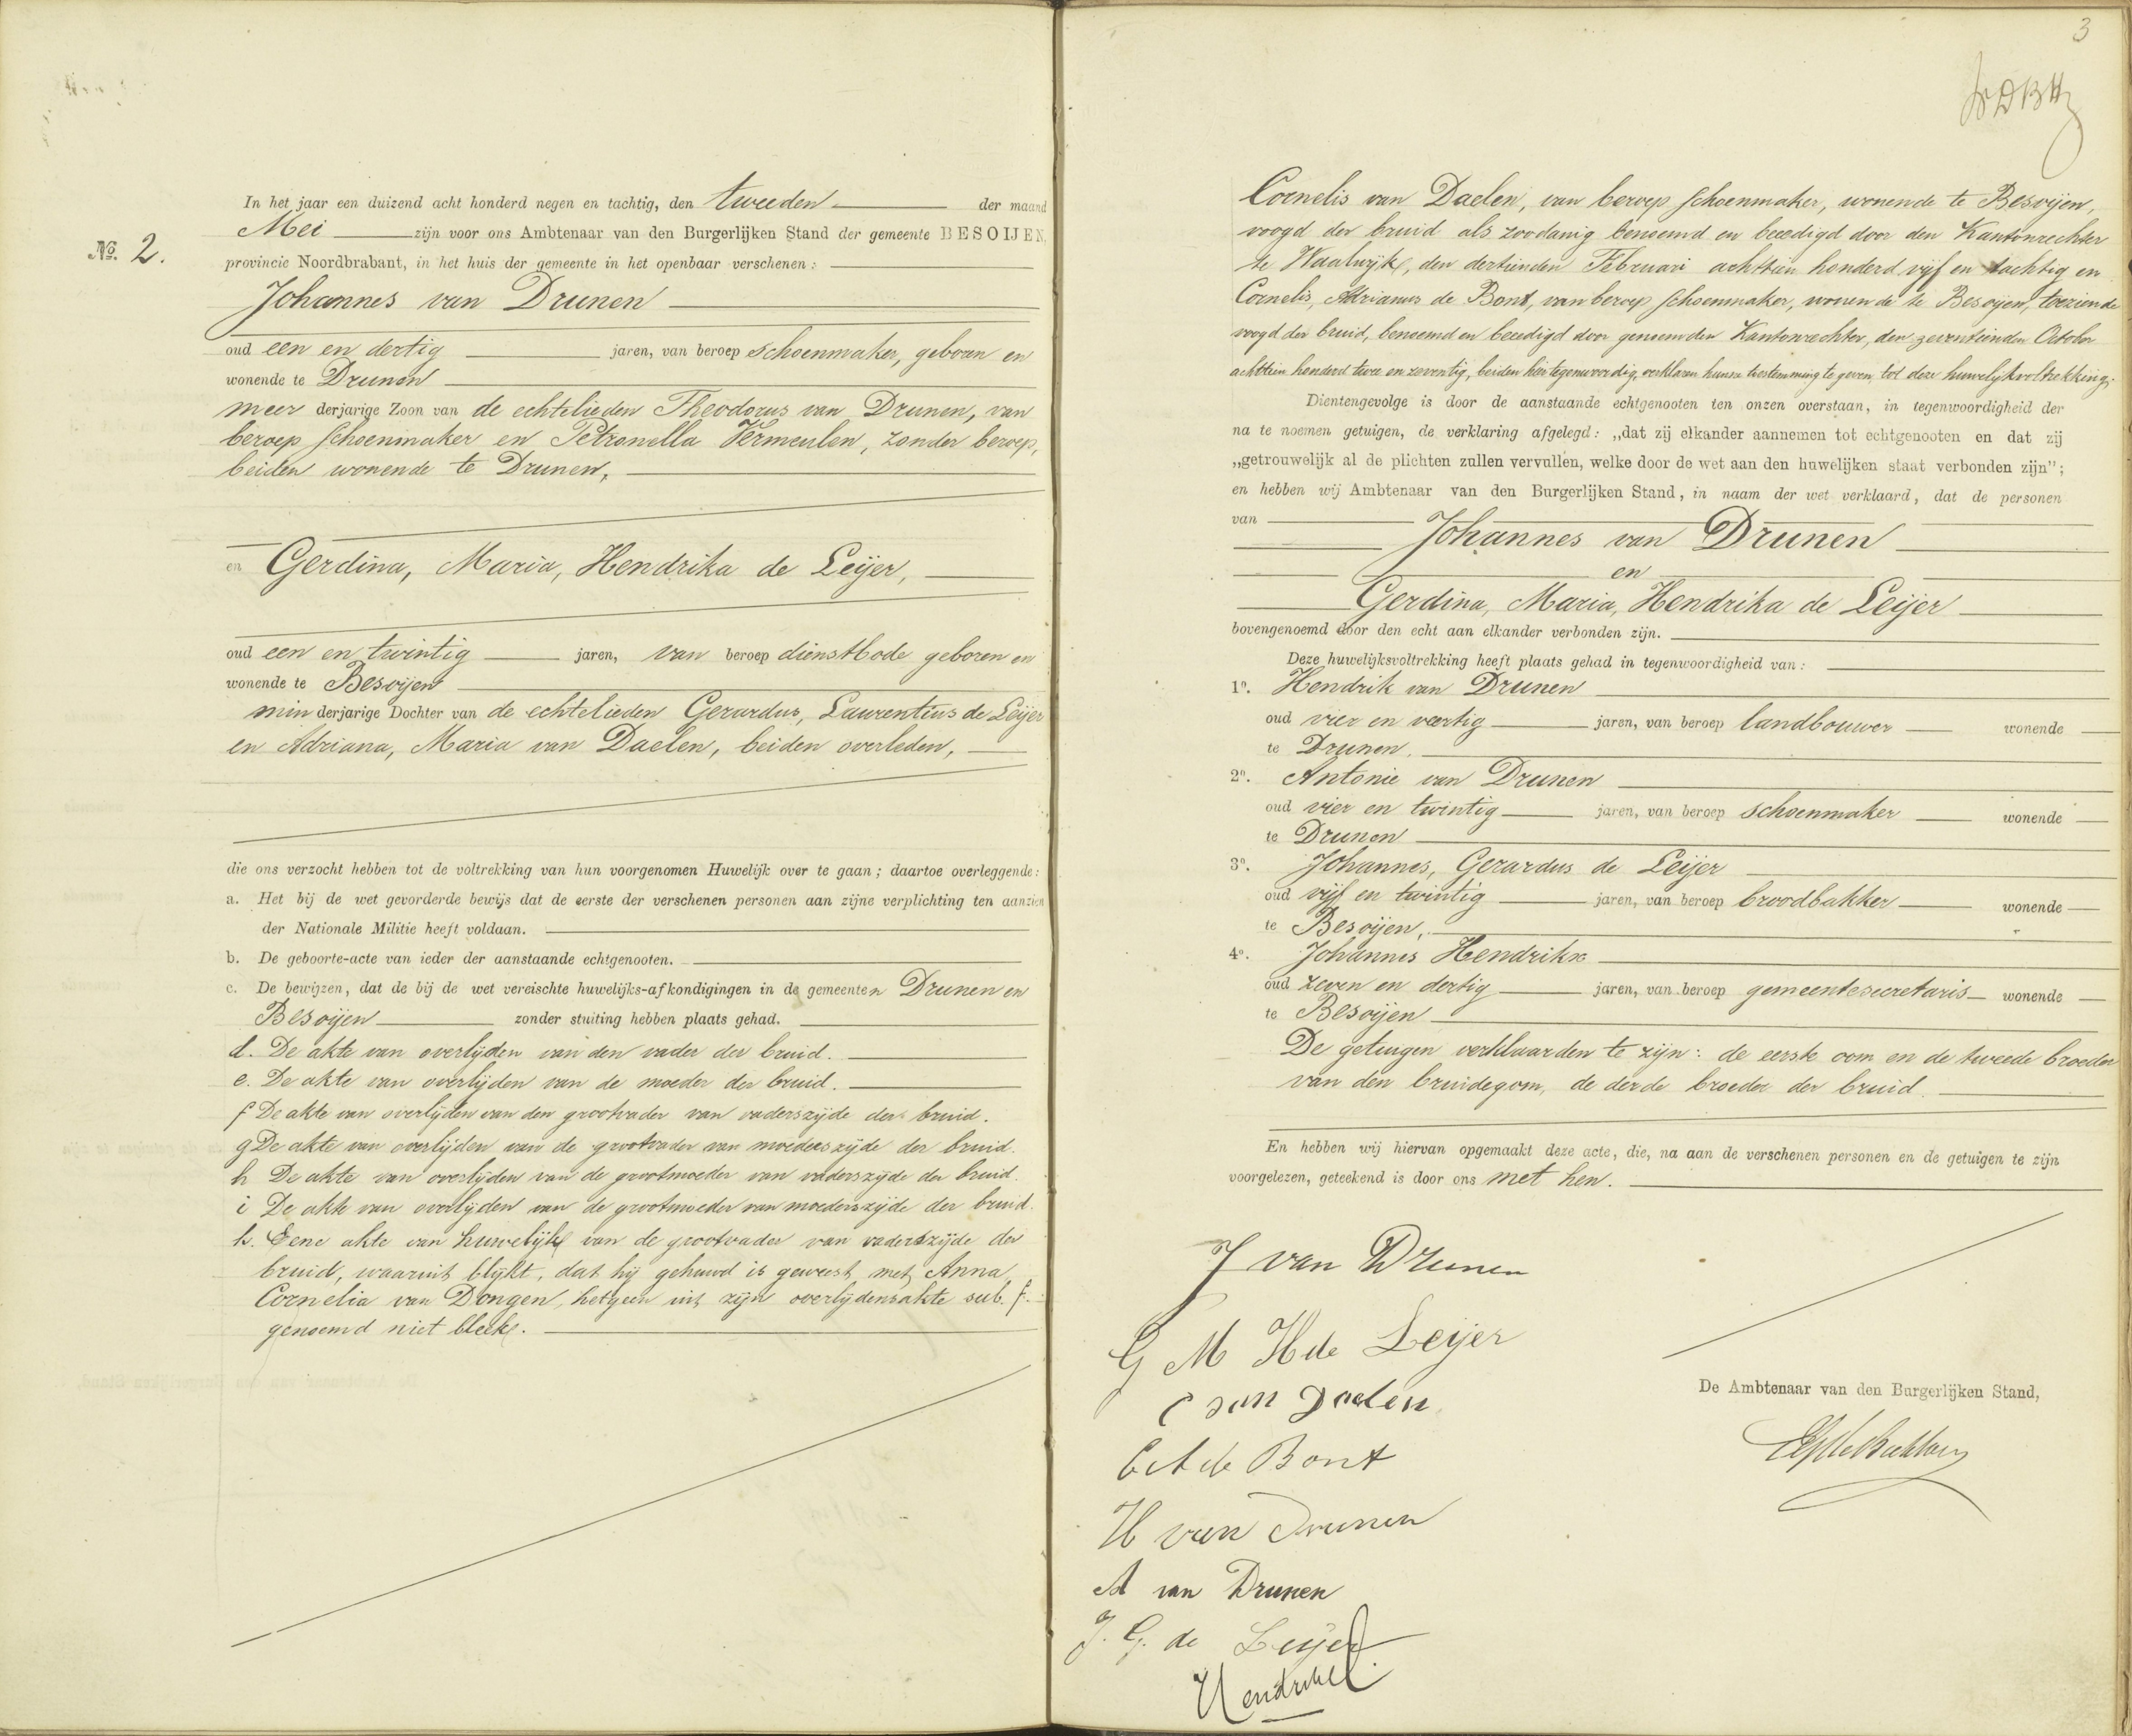 No. 2.
In het jaar een duizend acht honderd negen en tachtig, den tweeden der maand
Mei zijn voor ons Ambtenaar van den Burgerlijken Stand der gemeente BESOIJEN,
provincie Noordbrabant, in het huis der gemeente in het openbaar verschenen:
Johannes van Drunen
oud een en dertig jaren, van beroep schoenmaker, geboren en
wonende te Drunen
meer derjarige Zoon van de echtelieden Theodorus van Drunen, van
beroep schoenmaker en Petronella Vermeulen, zonder beroep,
beiden wonende te Drunen,
en Gerdina, Maria, Hendrika de Leijer,
oud een en twintig jaren, van beroep dienstbode geboren en
wonende te Besoijen
min derjarige Dochter van de echtelieden Gerardus, Laurentius de Leijer
en Adriana, Maria van Daelen, beiden overleden,
die ons verzocht hebben tot de voltrekking van hun voorgenomen Huwelijk over te gaan; daartoe overleggende:
a. Het bij de wet gevorderde bewijs dat de eerste der verschenen personen aan zijne verplichting ten aanzien
der Nationale Militie heeft voldaan.
b. De geboorte-acte van ieder der aanstaande echtgenooten.
c. De bewijzen, dat de bij de wet vereischte huwelijks-afkondigingen in de gemeenten Drunen en
Besoijen zonder stuiting hebben plaats gehad.
d. De akte van overlijden van den vader der bruid.
e. De akte van overlijden van de moeder der bruid.
f De akte van overlijden van den grootvader van vaderszijde der bruid.
g De akte van overlijden van de grootvader van moederszijde der bruid.
h De akte van overlijden van de grootmoeder van vaderszijde der bruid.
i De akte van overlijden van de grootmoeder van moederszijde der bruid.
k. Eene akte van huwelijk van de grootvader van vaderszijde der
bruid, waaruit blijkt, dat hij gehuwd is geweest met Anna,
Cornelia van Dongen, hetgeen uit zijn overlijdensakte sub. f.
genoemd niet bleek.
3
Cornelis van Daelen, van beroep schoenmaker, wonende te Besoijen,
voogd der bruid als zoodanig benoemd en beëedigd door den Kantonrechter
te Waalwijk, den dertienden Februari achttien honderd vijf en tachtig en
Cornelis, Adrianus de Bont, van beroep schoenmaker, wonende te Besoijen, toeziende
voogd der bruid, benoemd en beëedigd door genoemden Kantonrechter, den zeventienden October
achttien honderd twee en zeventig, beiden hier tegenwoordig, verklaren hunne toestemming te geven tot deze huwelijksvoltrekking;
Dientengevolge is door de aanstaande echtgenooten ten onzen overstaan, in tegenwoordigheid der
na te noemen getuigen, de verklaring afgelegd: „dat zij elkander aannemen tot echtgenooten en dat zij
„getrouwelijk al de plichten zullen vervullen, welke door de wet aan den huwelijken staat verbonden zijn";
en hebben wij Ambtenaar van den Burgerlijken Stand, in naam der wet verklaard, dat de personen
van
Johannes van Drunen
en
Gerdina, Maria, Hendrika de Leijer
bovengenoemd door den echt aan elkander verbonden zijn.
Deze huwelijksvoltrekking heeft plaats gehad in tegenwoordigheid van:
1o. Hendrik van Drunen
oud vier en veertig jaren, van beroep landbouwer wonende
te Drunen,
2o. Antonie van Drunen
oud vier en twintig jaren, van beroep schoenmaker wonende
te Drunen
3o. Johannes, Gerardus de Leijer
oud vijf en twintig jaren, van beroep broodbakker wonende
te Besoijen,
4o. Johannes Hendrikx
oud zeven en dertig jaren, van beroep gemeentesecretaris wonende
te Besoijen
De getuigen verklaarden te zijn: de eerste oom en de tweede broeder
van den bruidegom, de derde broeder der bruid.
En hebben wij hiervan opgemaakt deze acte, die, na aan de verschenen personen en de getuigen te zijn
voorgelezen, geteekend is door ons met hen.
J van Drunen
G M H de Leijer
C van Daelen
C A de Bont
H van Drunen
A van Drunen
J. G. de Leijer
De Ambtenaar van den Burgerlijken Stand,